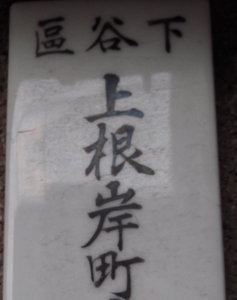 下谷區
上根岸町